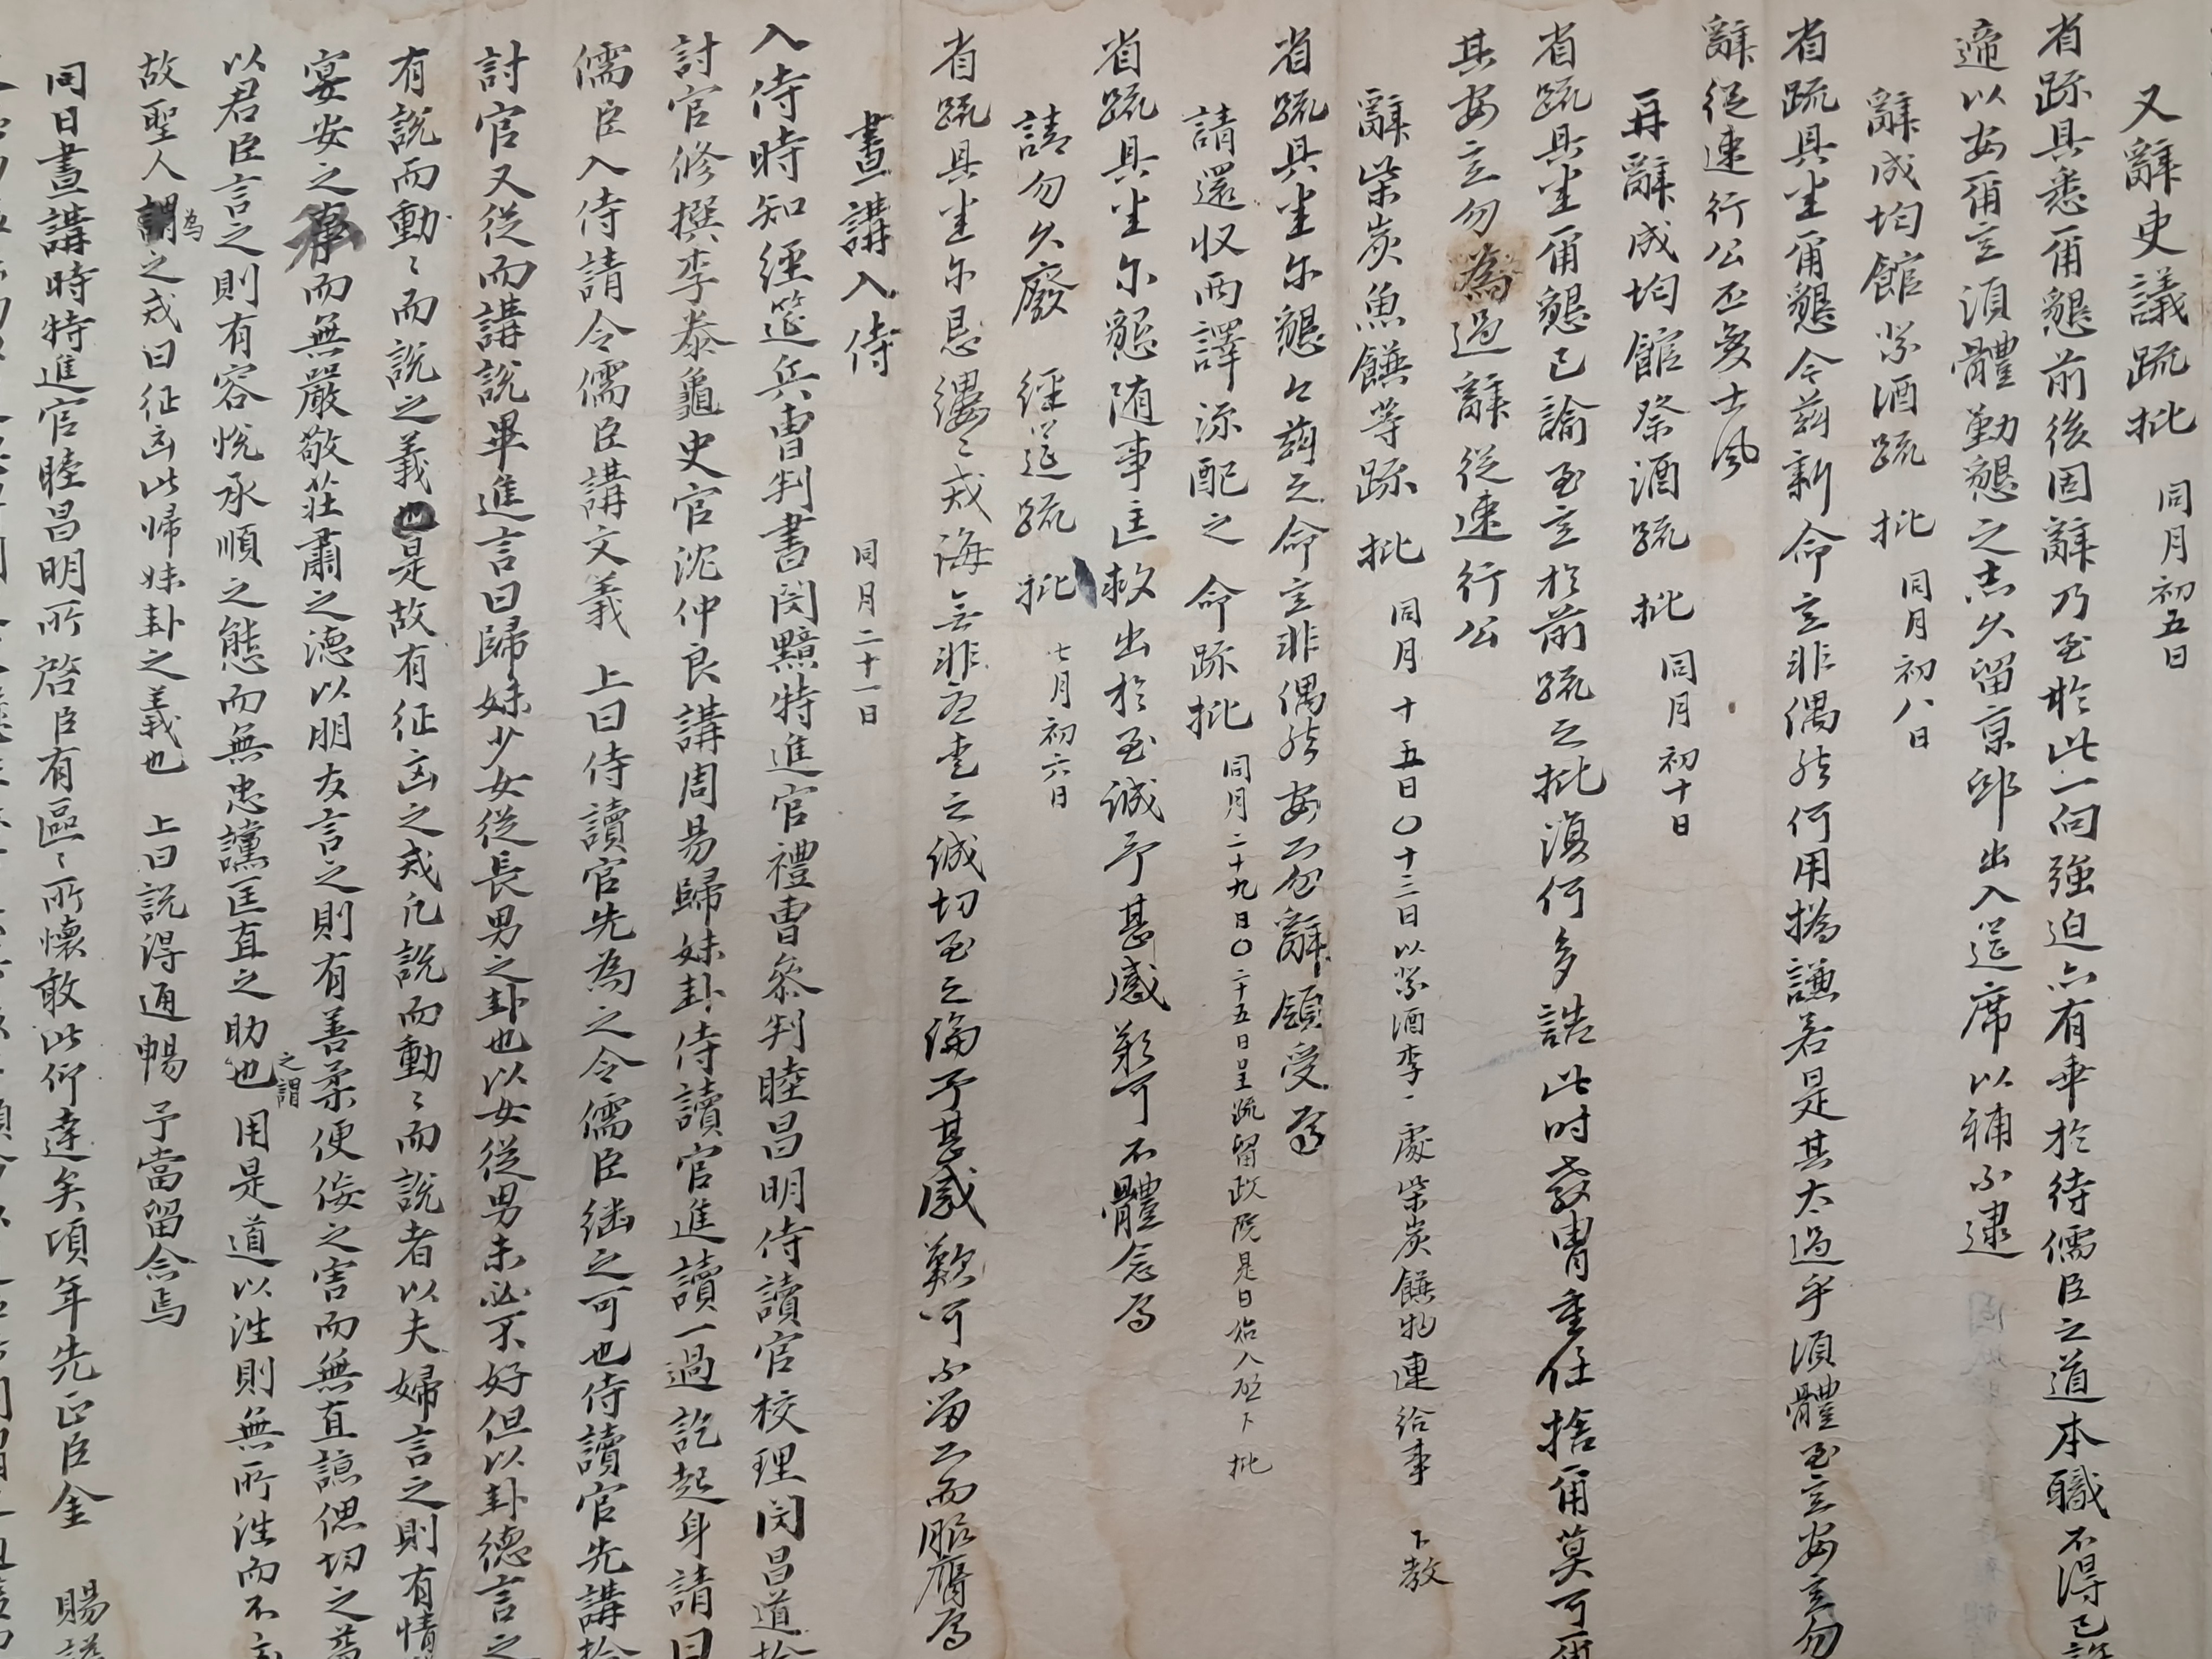 又辭吏議疏批 同月初五日
省疏具悉爾懇前後固辭乃至於此一向強迫亦有乖於待儒臣之道本職不得已許
遞以安爾意須體勤懇之志久留京邸出入筵席以補不逮
辭成均館祭酒疏 批 同月初八日
省疏具悉爾懇今玆新命意非偶然何用撝謙若是其太過乎須體至意安意勿
辭從速行公丕變士風
再辭成均館祭酒疏 批 同月初十日
省疏具悉爾懇已諭至意於前疏之批復何多誥此時敎胄重任捨爾莫可爾
其安意勿為過辭從速行公
辭柴炭魚饌等疏 批 同月十五日〇十三日以祭酒李、處柴炭饌物連給事 下敎
省疏具悉尔懇今玆之命意非偶然安心勿辭領受焉
請還收兩譯添配之 命疏批 同月二十九日〇二十五日呈疏留政院是日始入啓下批
省疏具悉尔懇随事匡救出於至誠予甚感歎可不體念焉
請勿久廢 經筵疏 批 七月初六日
省疏具悉尔懇縷〻戒誨無非忠愛之誠切至之論予甚感歎可不留心而服膺焉
晝講入侍 同月二十一日
入侍時知經筵兵曹判書閔黯特進官禮曹叅判睦昌明侍讀官校理閔昌道檢
討官修撰李泰龜史官沈仲良講周易歸妹卦侍讀官進讀一過訖起身請曰
儒臣入侍請令儒臣講文義 上曰侍讀官先為之令儒臣継之可也侍讀官先講檢
討官又從而講說畢進言曰歸妹少女從長男之卦也以女從男未必不好但以卦德言之
有說而動〻而說之義也是故有征凶之戒凡說而動〻而說者以夫婦言之則有情
宴安之事而無嚴敬莊肅之德以朋友言之則有善柔便侫之害而無直諒偲切之益
以君臣言之則有容悅承順之態而無忠讜匡直之助也之謂用是道以往則無所往而不
故聖人謂為之戒曰征凶此帰妹卦之義也 上曰說得通暢予當留念焉
同日晝講時特進官睦昌明所 啓臣有區〻所懷敢此仰達矣頃年先正臣金 賜